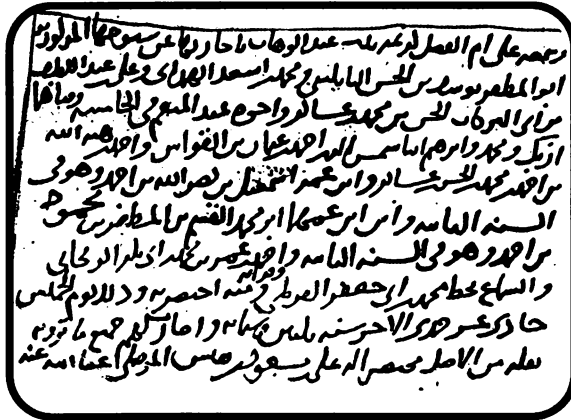 وسمعه على ام الفضل كريمة بنت عبد الوهاب باجازتها عن
ابو المظفر يوسف بن الحسن النابلسي ومحمد بن اسعد الهمداني وعلي بن عبد اللطيف
بن ابي البركات الحسن بن محمد بن عساكر واخوه عبد المنعم في الخامسة وفتاها
ازبك ومحمد وابرهيم ابنا شمس الدين احمد بن عثمان بن القواس واحمد بن هبة الله
بن احمد بن محمد بن الحسن بن عساكر وابن عمه اسمعيل بن نصر الله بن احمد وهو في
السنة الثامنة وابن ابن عمهما ابو محمد القسم بن المظفر بن محمود
بن احمد وهو في السنة الثانية واحمد بن عمر بن محمد
والسماع بخط محمد بن ابي جعفر القرطبي وقراءته ومنه اختصرته وذلك يوم الخميس
حادي عشر جمدى الاخر سنة ثلثين وستمائة واجازت لهم جميع ما ترويه
نقله من الاصل مختصرا له علي بن مسعود بن نفيس الموصلي عفا الله عنه